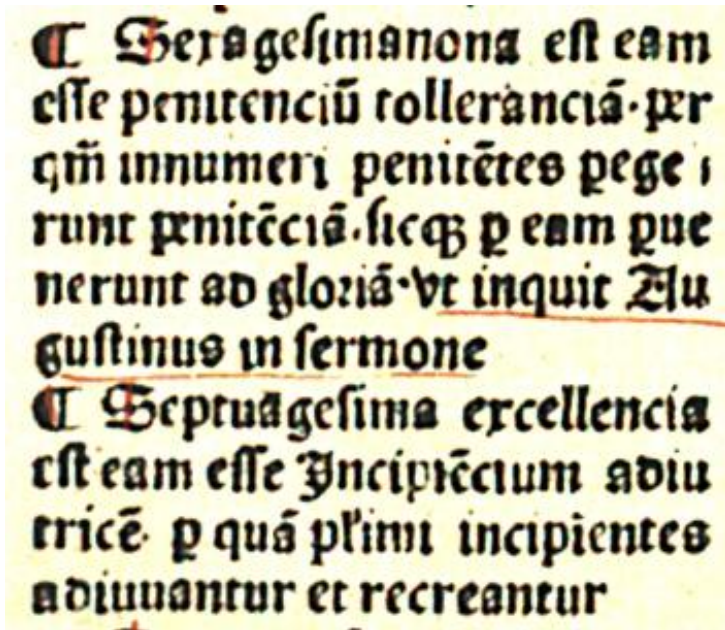 ¶ Sexagesimanona est eam
esse penitenciū tolleranciā. per
qm̄ innumeri penitētes ꝑege
runt penitēciā. sicqꝫ ꝑ eam ꝑue
nerunt ad gloriā. vt inquit Au
gustinus in sermone
¶ Septuagesima excellencia
est eam esse Incipiēcium adiu
tricē. ꝑ quā pl'imi incipientes
adiuuantur et recreantur